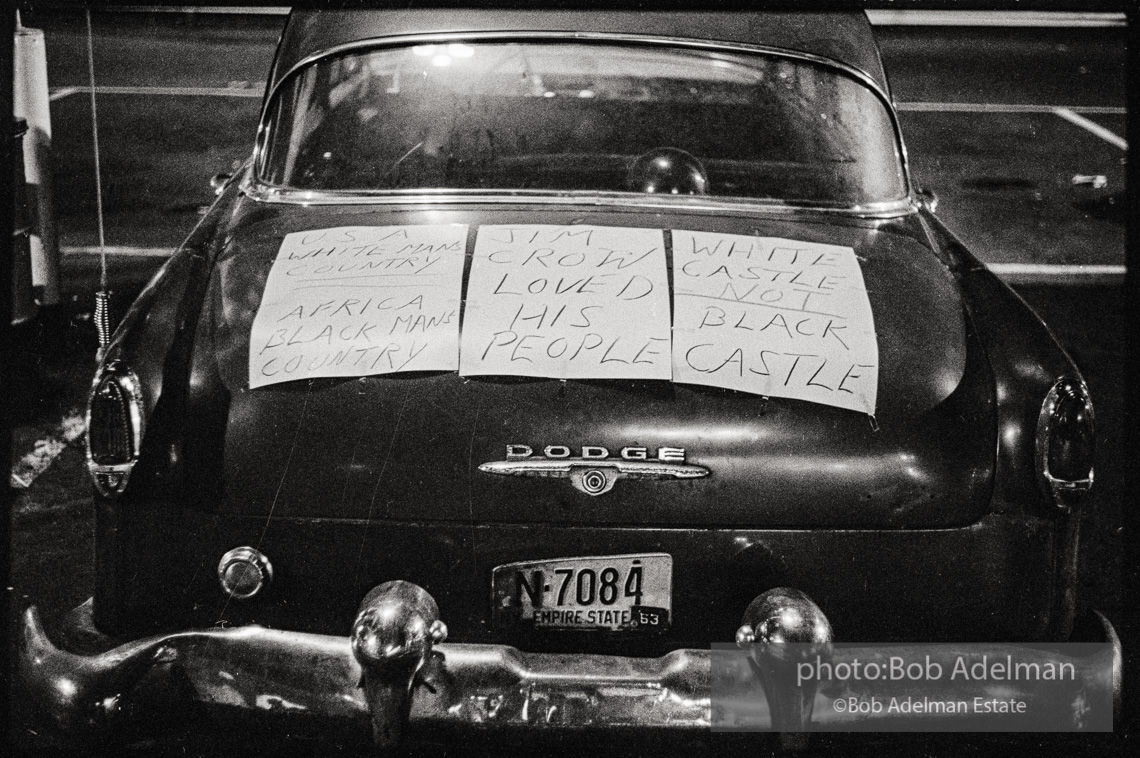 USA
WHITE MANS
COUNTRY
AFRICA
BLACK MANS
COUNTRY
JIM
CROW
LOVED
HIS
PEOPLE
WHITE
CASTLE
NOT
BLACK
CASTLE
DODGE
N·7084
EMPIRE STATE 63
photo:Bob Adelman
©Bob Adelman Estate